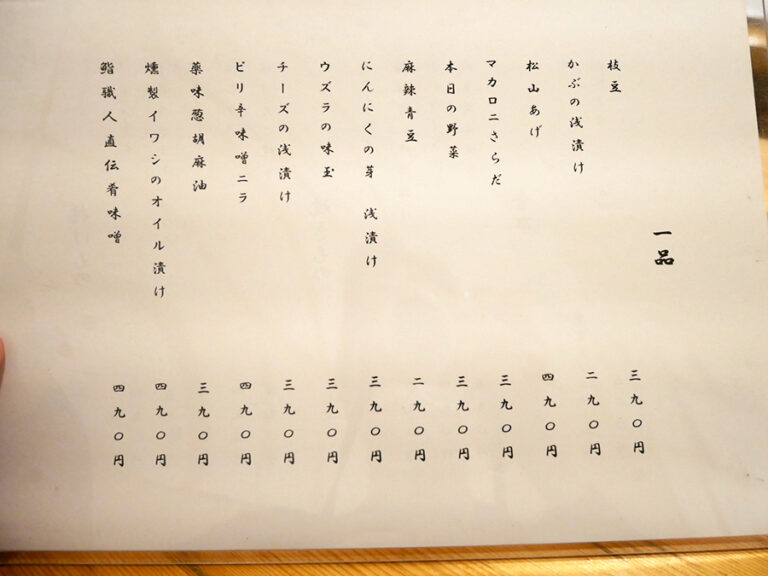 一品
枝豆 三九〇円
かぶの浅漬け 二九〇円
松山あげ 四九〇円
マカロニさらだ 三九〇円
本日の野菜 三九〇円
麻辣青豆 二九〇円
にんにくの芽 浅漬け 三九〇円
ウズラの味玉 三九〇円
チーズの浅漬け 三九〇円
ピリ辛味噌ニラ 四九〇円
薬味葱胡麻油 三九〇円
燻製イワシのオイル漬け 四九〇円
鮨職人直伝肴味噌 四九〇円